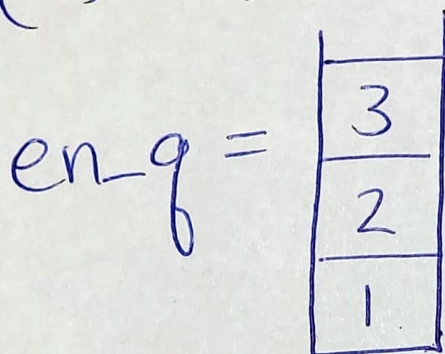 en_q =
3
2
1